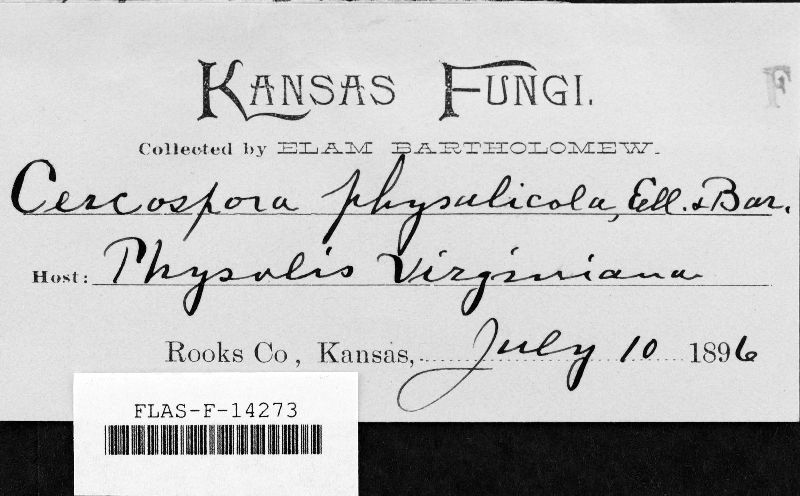 KANSAS FUNGI.
F
Collected by ELAM BARTHOLOMEW.
Cercospora physalicola, Ell. & Bar.
Host: Physalis Virginiana
Rooks Co, Kansas, July 10 1896
FLAS-F-14273